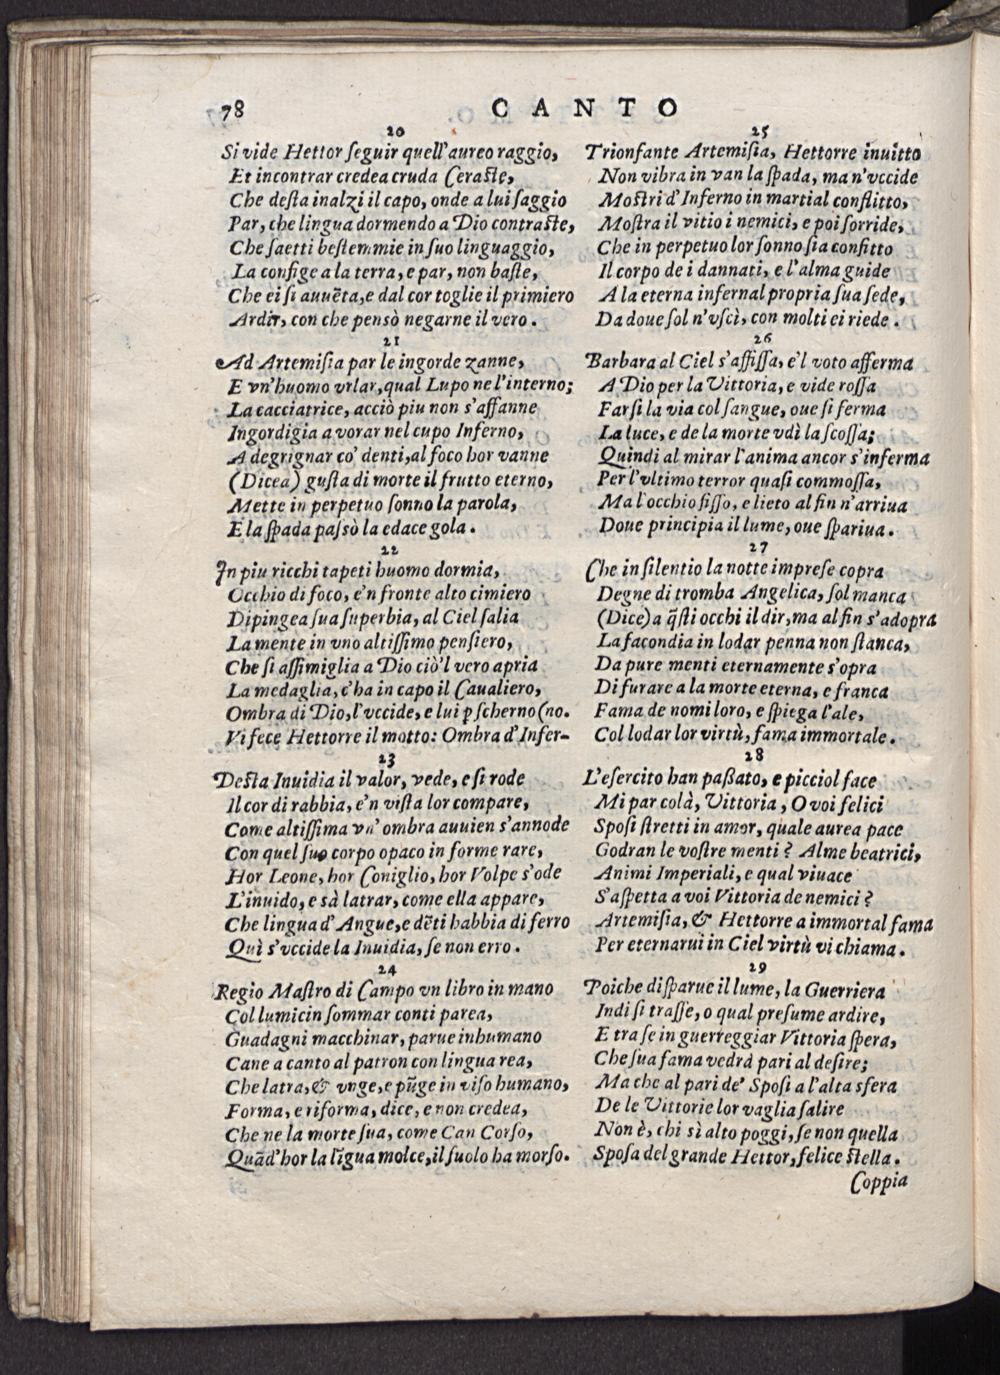 78 CANTO
20
Si vide Hettor ſeguir quell'aureo raggio,
Et incontrar credea cruda Ceraſte,
Che deſta inalzi il capo, onde a lui ſaggio
Par, che lingua dormendo a Dio contraſte,
Che ſaetti beſtemmie in ſuo linguaggio,
La conſige a la terra, e par, non baſte,
Che ei ſi auuẽta, e dal cor toglie il primiero
Ardir, con che pensò negarne il vero.
21
Ad Artemiſia par le ingorde zanne,
E vn'huomo vrlar, qual Lupo ne l'interno;
La cacciatrice, acciò piu non s'affanne
Ingordigia a vorar nel cupo Inferno,
A degrignar co' denti, al foco hor vanne
(Dicea) guſta di morte il frutto eterno,
Mette in perpetuo ſonno la parola,
E la ſpada paſsò la edace gola.
22
In piu ricchi tapeti huomo dormia,
Occhio di foco, e'n fronte alto cimiero
Dipingea ſua ſuperbia, al Ciel ſalia
La mente in vno altiſſimo penſiero,
Che ſi aſſimiglia a Dio ciò'l vero apria
La medaglia, c'ha in capo il Caualiero,
Ombra di Dio, l'vccide, e lui p ſcherno (no.
Vi fece Hettorre il motto: Ombra d'Infer-
23
Deſta Inuidia il valor, vede, e ſi rode
Il cor di rabbia, e'n viſta lor compare,
Come altiſſima vn' ombra auuien s'annode
Con quel ſuo corpo opaco in forme rare,
Hor Leone, hor Coniglio, hor Volpe s'ode
L'inuido, e sà latrar, come ella appare,
Che lingua d'Angue, e dẽti habbia di ferro
Quì s'vccide la Inuidia, ſe non erro.
24
Regio Maſtro di Campo vn libro in mano
Col lumicin ſommar conti parea,
Guadagni macchinar, parue inhumano
Cane a canto al patron con lingua rea,
Che latra, & vnge, e pũge in viſo humano,
Forma, e riforma, dice, e non credea,
Che ne la morte ſua, come Can Corſo,
Quãd'hor la lĩgua molce, il ſuolo ha morſo.
25
Trionfante Artemiſia, Hettorre inuitto
Non vibra in van la ſpada, ma n'vccide
Moſtri d'Inferno in martial conflitto,
Moſtra il vitio i nemici, e poi ſorride,
Che in perpetuo lor ſonno ſia confitto
Il corpo de i dannati, e l'alma guide
A la eterna infernal propria ſua ſede,
Da doue ſol n'vſcì, con molti ei riede.
26
Barbara al Ciel s'affiſſa, e'l voto afferma
A Dio per la Vittoria, e vide roſſa
Farſi la via col ſangue, oue ſi ferma
La luce, e de la morte vdì la ſcoſſa;
Quindi al mirar l'anima ancor s'inferma
Per l'vltimo terror quaſi commoſſa,
Ma l'occhio fiſſo, e lieto al fin n'arriua
Doue principia il lume, oue ſpariua.
27
Che in ſilentio la notte impreſe copra
Degne di tromba Angelica, ſol manca
(Dice) a q̃ſti occhi il dir, ma al fin s'adopra
La facondia in lodar penna non ſtanca,
Da pure menti eternamente s'opra
Di furare a la morte eterna, e franca
Fama de nomi loro, e ſpiega l'ale,
Col lodar lor virtù, fama immortale.
28
L'eſercito han paßato, e picciol face
Mi par colà, Vittoria, O voi felici
Spoſi ſtretti in amor, quale aurea pace
Godran le voſtre menti? Alme beatrici,
Animi Imperiali, e qual viuace
S'aſpetta a voi Vittoria de nemici?
Artemiſia, & Hettorre a immortal fama
Per eternarui in Ciel virtù vi chiama.
29
Poiche diſparue il lume, la Guerriera
Indi ſi traſſe, o qual preſume ardire,
E tra ſe in guerreggiar Vittoria ſpera,
Che ſua fama vedrà pari al deſire;
Ma che al pari de' Spoſi a l'alta sfera
De le Vittorie lor vaglia ſalire
Non è, chi sì alto poggi, ſe non quella
Spoſa del grande Hettor, felice ſtella.
Coppia